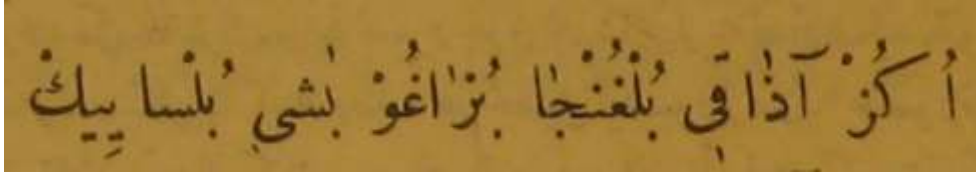 اُكُزْ آذٰاقِي بُلْغُنْجٰا بُزٰاغُوْ بٰشِي بُلْسا يِيكْ